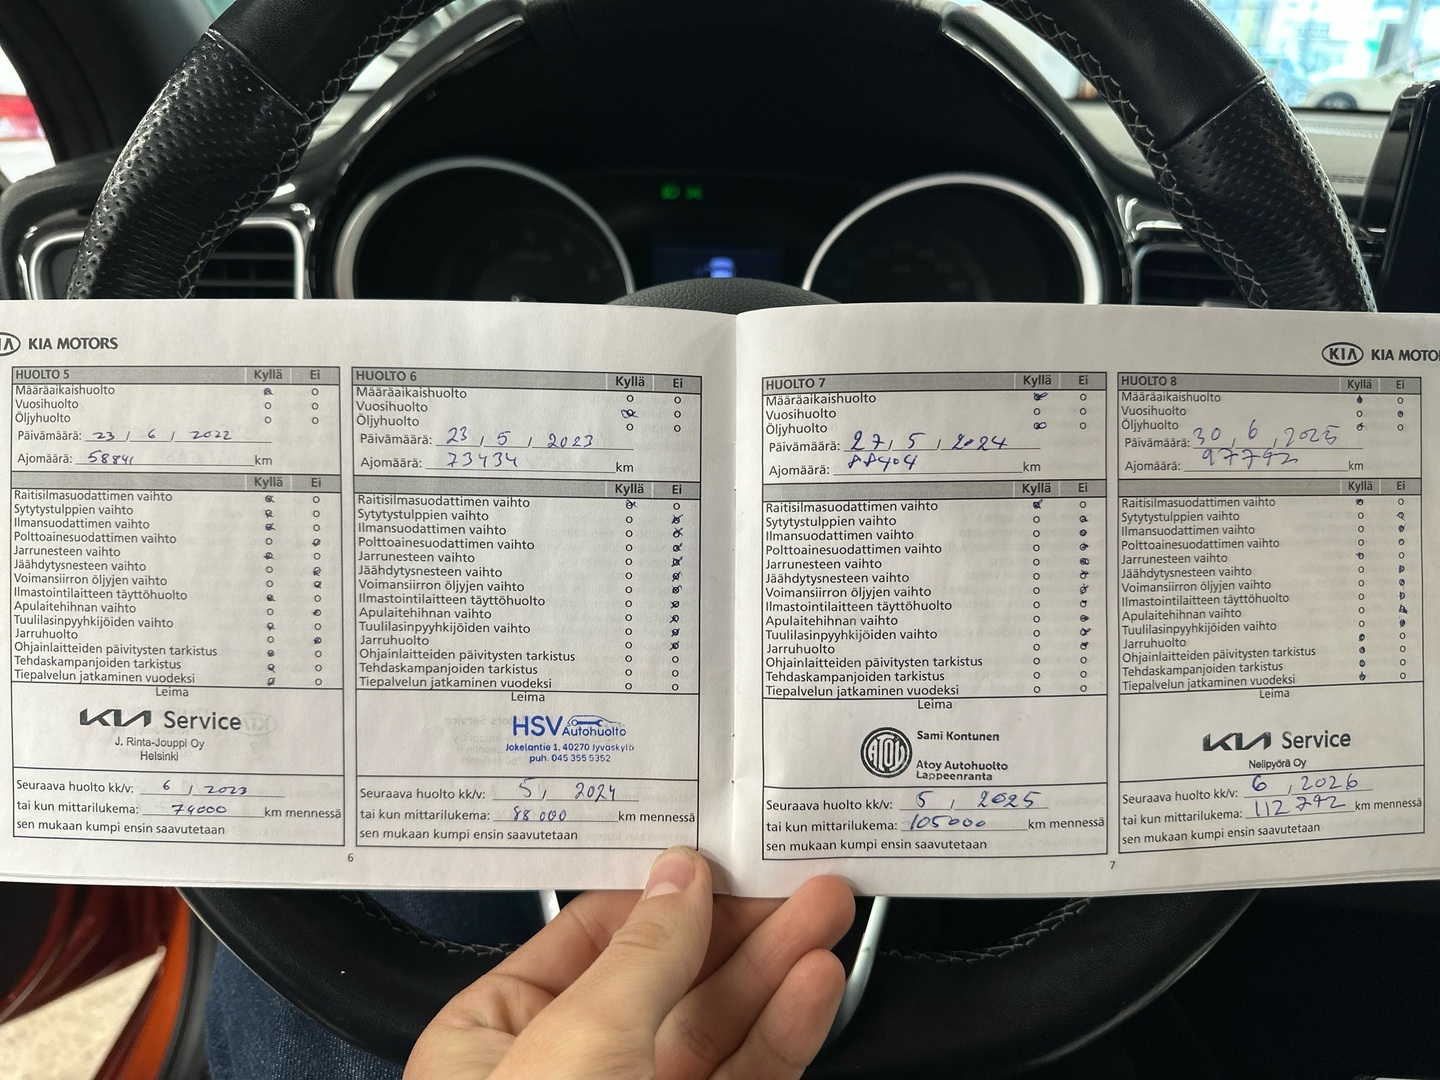 KIA MOTORS
HUOLTO 5 Kyllä Ei
Määräaikaishuolto
Vuosihuolto
Öljyhuolto
Päivämäärä: 23 / 6 / 2022
Ajomäärä: 58841 km
Kyllä Ei
Raitisilmasuodattimen vaihto
Sytytystulppien vaihto
Ilmansuodattimen vaihto
Polttoainesuodattimen vaihto
Jarrunesteen vaihto
Jäähdytysnesteen vaihto
Voimansiirron öljyjen vaihto
Ilmastointilaitteen täyttöhuolto
Apulaitehihnan vaihto
Tuulilasinpyyhkijöiden vaihto
Jarruhuolto
Ohjainlaitteiden päivitysten tarkistus
Tehdaskampanjoiden tarkistus
Tiepalvelun jatkaminen vuodeksi
Leima
KIA Service
J. Rinta-Jouppi Oy
Helsinki
Seuraava huolto kk/v: 6 / 2023
tai kun mittarilukema: 74000 km mennessä
sen mukaan kumpi ensin saavutetaan
6
HUOLTO 6 Kyllä Ei
Määräaikaishuolto
Vuosihuolto
Öljyhuolto
Päivämäärä: 23 / 5 / 2023
Ajomäärä: 73434 km
Kyllä Ei
Raitisilmasuodattimen vaihto
Sytytystulppien vaihto
Ilmansuodattimen vaihto
Polttoainesuodattimen vaihto
Jarrunesteen vaihto
Jäähdytysnesteen vaihto
Voimansiirron öljyjen vaihto
Ilmastointilaitteen täyttöhuolto
Apulaitehihnan vaihto
Tuulilasinpyyhkijöiden vaihto
Jarruhuolto
Ohjainlaitteiden päivitysten tarkistus
Tehdaskampanjoiden tarkistus
Tiepalvelun jatkaminen vuodeksi
Leima
HSV Autohuolto
Jokelantie 1, 40270 Jyväskylä
puh. 045 355 5352
Seuraava huolto kk/v: 5 / 2024
tai kun mittarilukema: 88 000 km mennessä
sen mukaan kumpi ensin saavutetaan
KIA KIA MOTO
HUOLTO 7 Kyllä Ei
Määräaikaishuolto
Vuosihuolto
Öljyhuolto
Päivämäärä: 27 / 5 / 2024
Ajomäärä: 88404 km
Kyllä Ei
Raitisilmasuodattimen vaihto
Sytytystulppien vaihto
Ilmansuodattimen vaihto
Polttoainesuodattimen vaihto
Jarrunesteen vaihto
Jäähdytysnesteen vaihto
Voimansiirron öljyjen vaihto
Ilmastointilaitteen täyttöhuolto
Apulaitehihnan vaihto
Tuulilasinpyyhkijöiden vaihto
Jarruhuolto
Ohjainlaitteiden päivitysten tarkistus
Tehdaskampanjoiden tarkistus
Tiepalvelun jatkaminen vuodeksi
Leima
ATOY
Sami Kontunen
Atoy Autohuolto
Lappeenranta
Seuraava huolto kk/v: 5 / 2025
tai kun mittarilukema: 105000 km mennessä
sen mukaan kumpi ensin saavutetaan
7
HUOLTO 8 Kyllä Ei
Määräaikaishuolto
Vuosihuolto
Öljyhuolto
Päivämäärä: 30 / 6 / 2025
Ajomäärä: 97792 km
Kyllä Ei
Raitisilmasuodattimen vaihto
Sytytystulppien vaihto
Ilmansuodattimen vaihto
Polttoainesuodattimen vaihto
Jarrunesteen vaihto
Jäähdytysnesteen vaihto
Voimansiirron öljyjen vaihto
Ilmastointilaitteen täyttöhuolto
Apulaitehihnan vaihto
Tuulilasinpyyhkijöiden vaihto
Jarruhuolto
Ohjainlaitteiden päivitysten tarkistus
Tehdaskampanjoiden tarkistus
Tiepalvelun jatkaminen vuodeksi
Leima
KIA Service
Nelipyörä Oy
Seuraava huolto kk/v: 6 / 2026
tai kun mittarilukema: 112 792 km mennessä
sen mukaan kumpi ensin saavutetaan